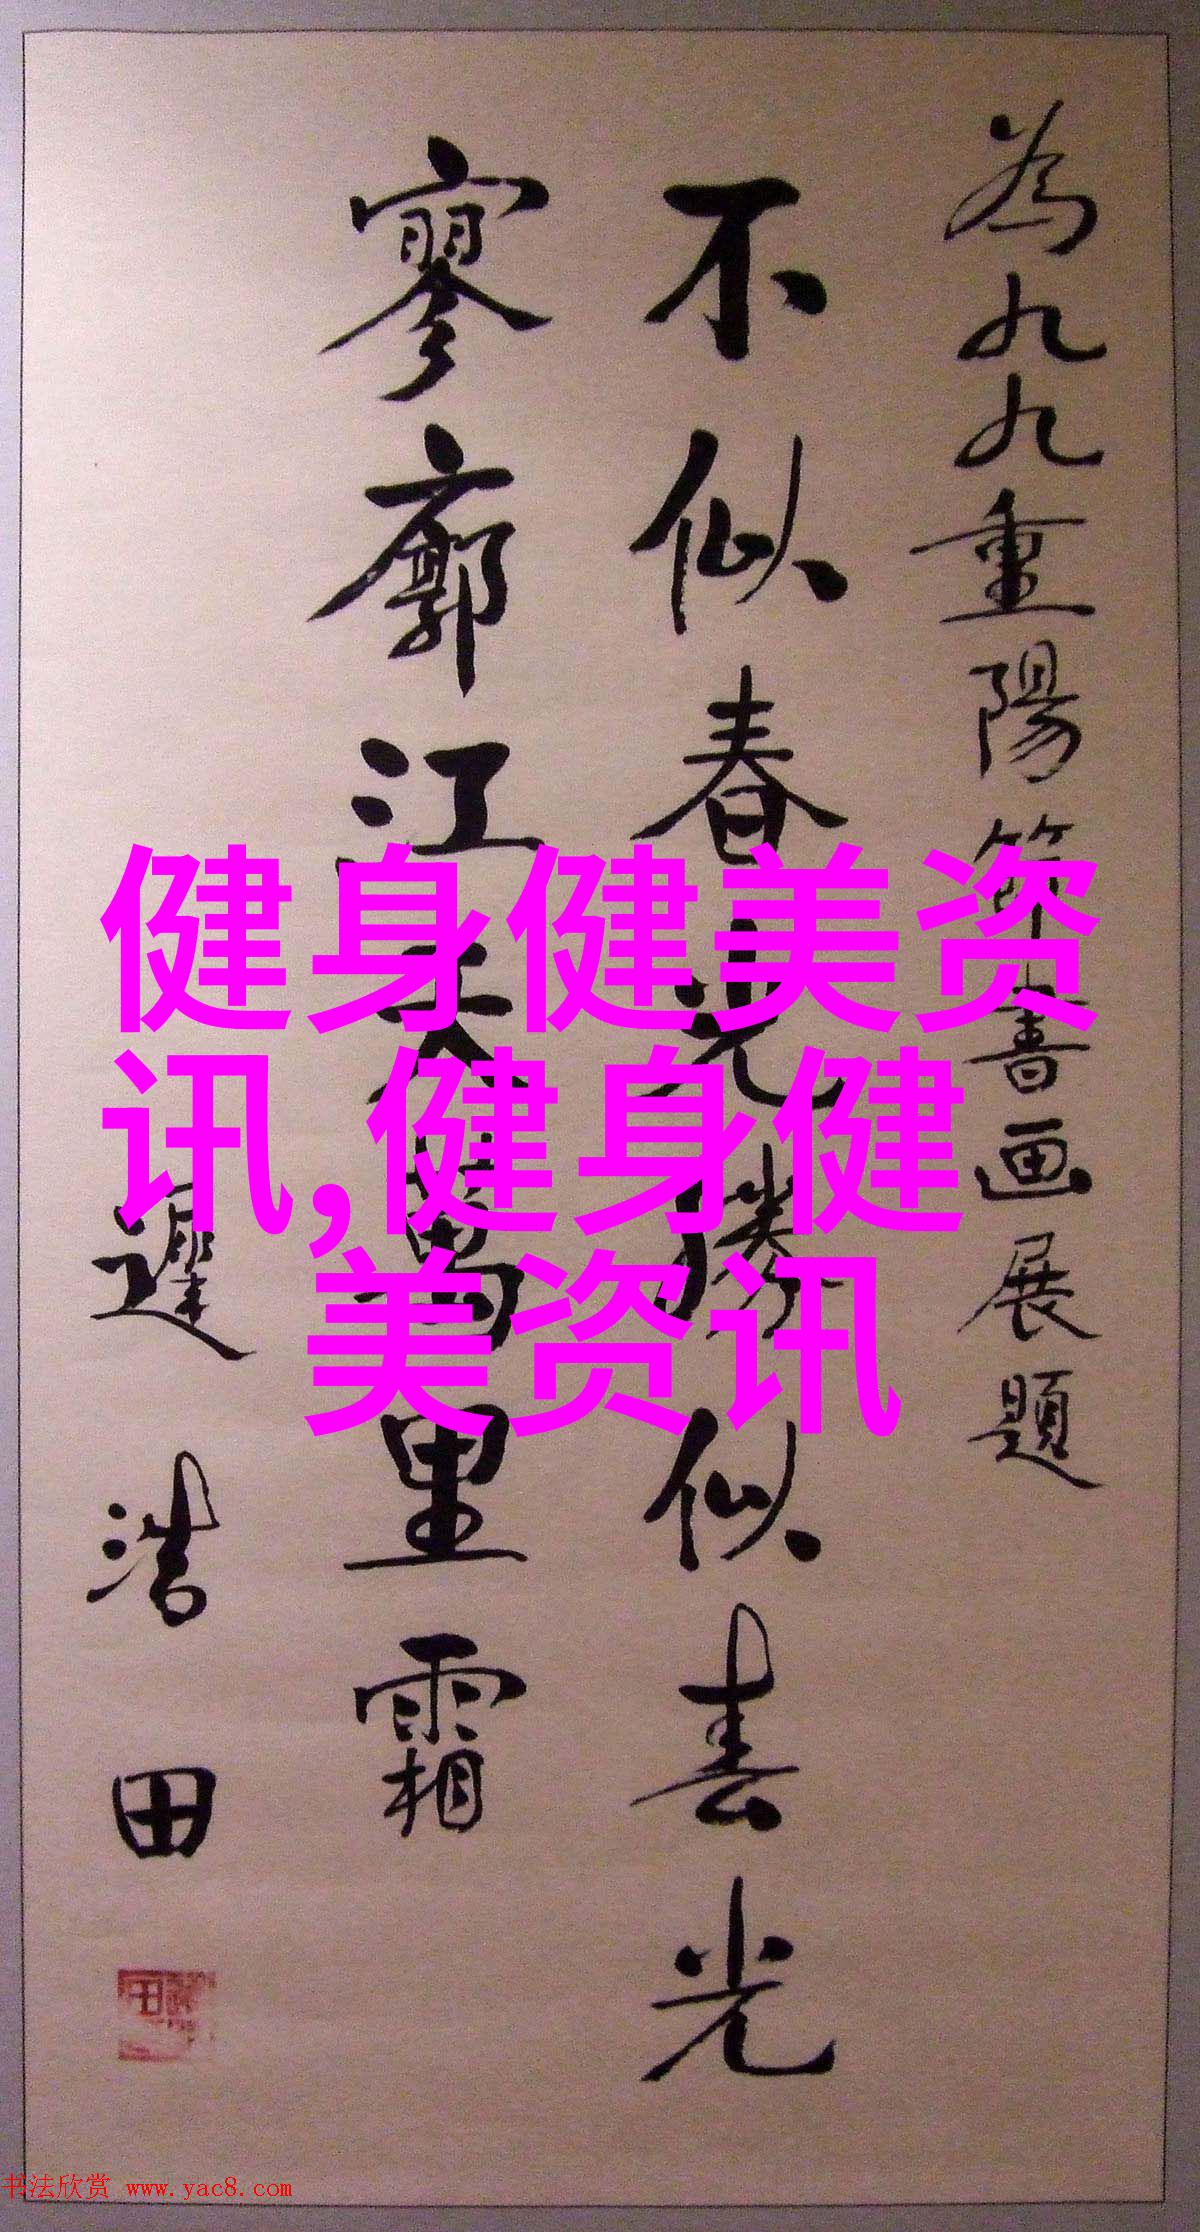 為九九重陽節書画展題
不似春光勝似春光
寥廓江天萬里霜
遲浩田
健身健美资
讯,健身健
美资讯
书法欣赏 www.yac8.com